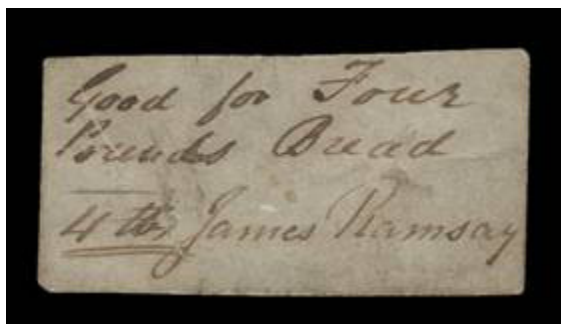 Good for Four
Pounds Bread
4 lb James Ramsay